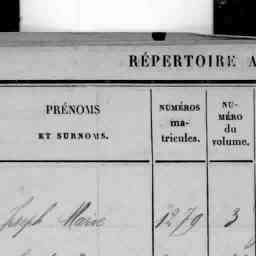 RÉPERTOIRE A
PRÉNOMS
ET SURNOMS.
NUMÉROS
ma-
tricules.
NU-
MÉRO
du
volume.
Joseph Marie 1279 3